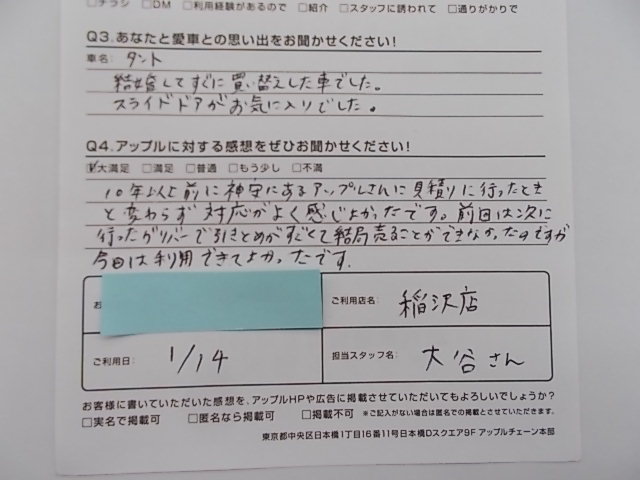 □チラシ □DM □利用経験があるので □紹介 □スタッフに誘われて □通りがかりで
Q3.あなたと愛車との思い出をお聞かせください!
車名: タント
結婚してすぐに買い替えした車でした。
スライドドアがお気に入りでした。
Q4.アップルに対する感想をぜひお聞かせください!
☑大満足 □満足 □普通 □もう少し □不満
10年以上前に神守にあるアップルさんに見積りに行ったとき
と変わらず対応がよく感じよかったです。前回は次に
行ったガリバーで引きとめがすごくて結局売ることができなかったのですが
今回は利用できてよかったです。
お
ご利用店名: 稲沢店
ご利用日: 1/14
担当スタッフ名: 大谷さん
お客様に書いていただいた感想を、アップルHPや広告に掲載させていただいてもよろしいでしょうか?
□実名で掲載可 □匿名なら掲載可 □掲載不可 ※ご記入がない場合は匿名での掲載とさせていただきます。
東京都中央区日本橋1丁目16番11号日本橋Dスクエア9F アップルチェーン本部